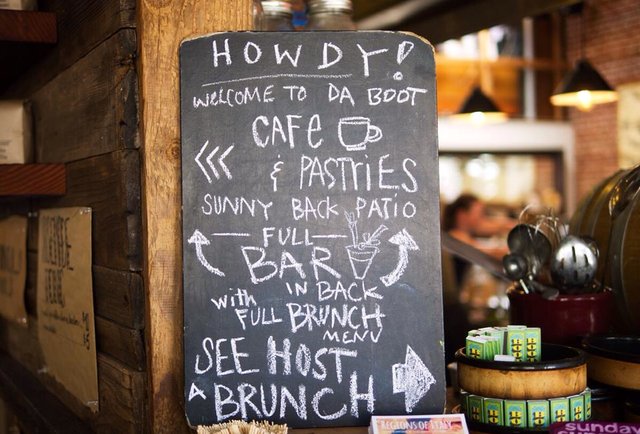 HOWDY!
WELCOME TO DA BOOT
CAFE
& PASTRIES
SUNNY BACK PATIO
FULL
BAR
IN BACK
with
FULL BRUNCH
MENU
SEE HOST
A BRUNCH
REGIONS OF ITALY
sunday